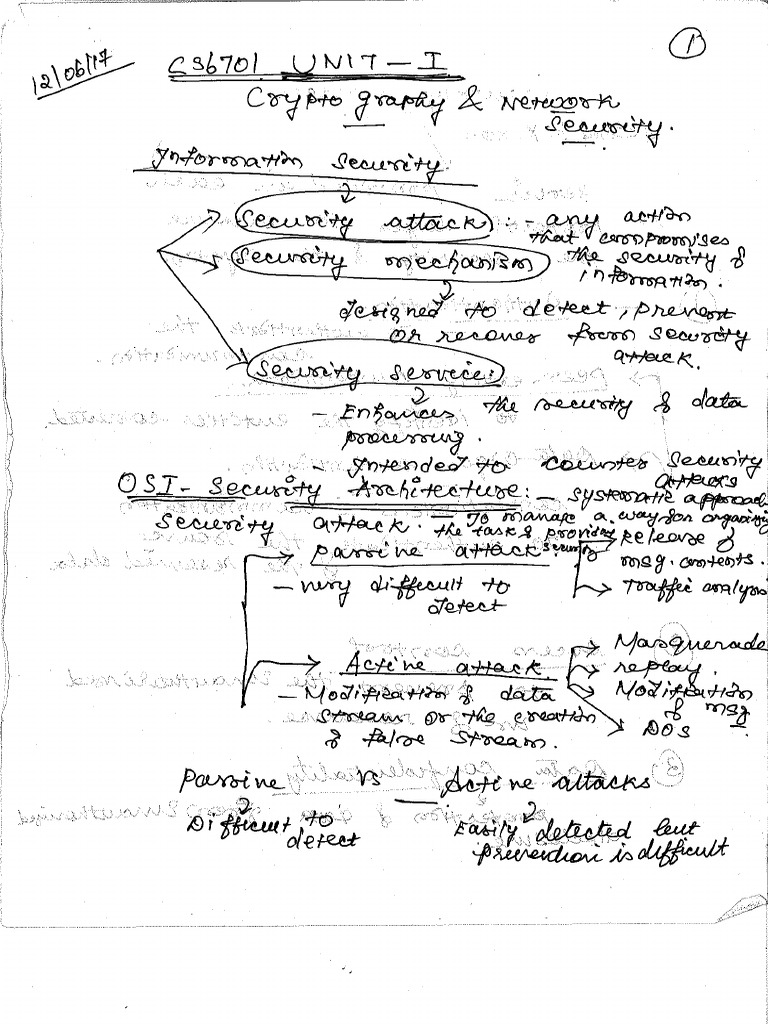 1
12/06/17
CS6701 UNIT - I
Cryptography & Network
Security.
Information Security.
Security attack : - any action
that compromises
the security of
information.
Security mechanism
designed to detect, prevent
or recover from security
attack.
Security service:
- Enhances the security of data
processing.
- Intended to counter security
attacks
OSI - Security Architecture: - systematic approach
- To manage a way for organizing
the task of providing
security
Security attack.
Passive attack
- very difficult to
detect
Release of
msg. contents.
Traffic analysis
Active attack
- Modification of data
stream or the creation
of false stream.
Masquerade
replay.
Modification
of msg
DOS
Passive vs Active attacks
Difficult to
detect
Easily detected but
prevention is difficult